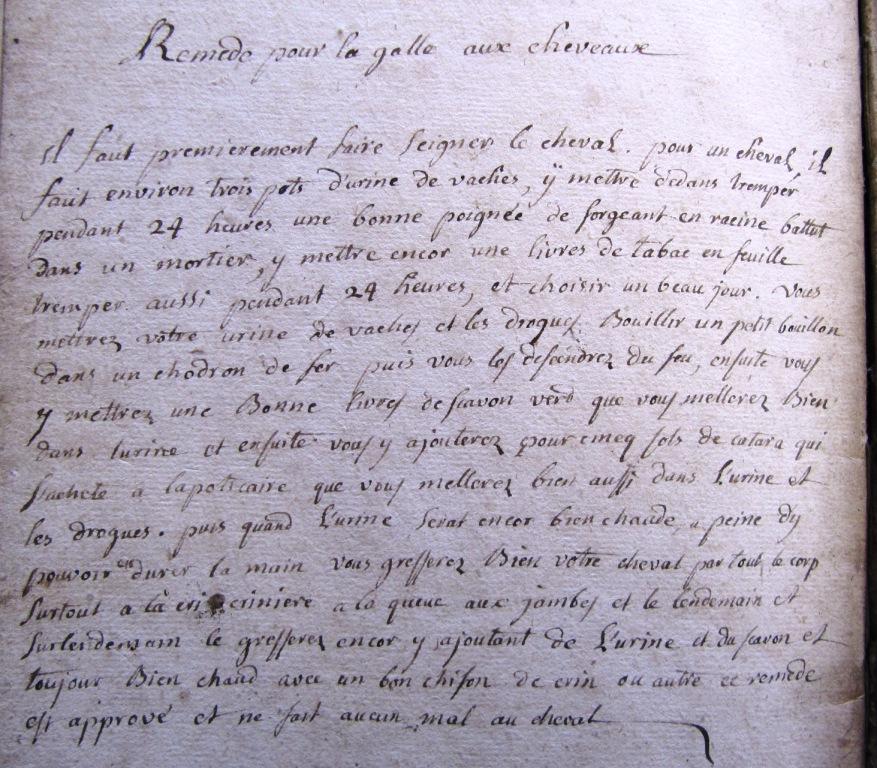 Remede pour la galle aux cheveaux
il faut premierement faire seigner le cheval. pour un cheval il
faut environ trois pots d'urine de vaches, ÿ mettre dedans tremper
pendant 24 heures une bonne poignée de forgeant en racine battut
dans un mortier, y mettre encor une livres de tabac en feuille
tremper aussi pendant 24 heures, et choisir un beau jour. vous
mettrez votre urine de vaches et les drogues Bouillir un petit bouillon
dans un chodron de fer puis vous les desendrez du feu, ensuite vous
y mettrez une Bonne livres de savon verd que vous mellerez Bien
dans lurine et ensuite vous y ajouterez pour cincq sols de catara qui
sachete a lapoticaire que vous mellerez bien aussi dans L'urine et
les drogues. puis quand L'urine serat encor bien chaude, a peine dy
pouvoir en durer la main vous gresserez Bien votre cheval par tout le corp
surtout a la criniere a la queue aux jambes et le lendemain et
surlendemain le gresserez encor y ajoutant de L'urine et du savon et
toujour Bien chaud avec un bon chifon de crin ou autre ce remede
est approuvé et ne fait aucun mal au cheval